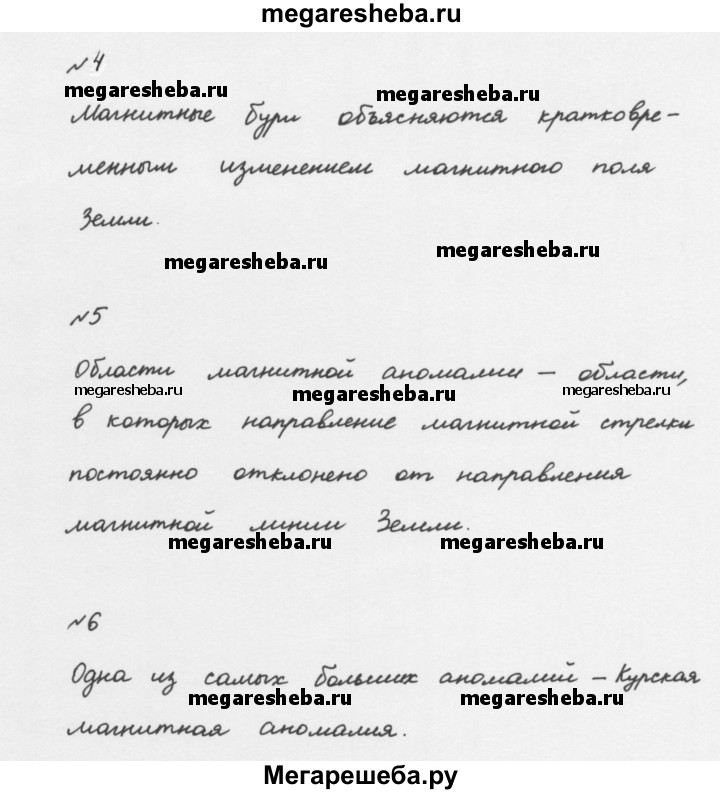 megaresheba.ru
№4
megaresheba.ru megaresheba.ru
Магнитные бури объясняются кратковре-
менным изменением магнитного поля
Земли.
megaresheba.ru megaresheba.ru
№5
Области магнитной аномалии – области,
megaresheba.ru megaresheba.ru megaresheba.ru
в которых направление магнитной стрелки
постоянно отклонено от направления
магнитной линии Земли.
megaresheba.ru megaresheba.ru
№6
Одна из самых больших аномалий – Курская
megaresheba.ru megaresheba.ru
магнитная аномалия.
Мегарешеба.ру